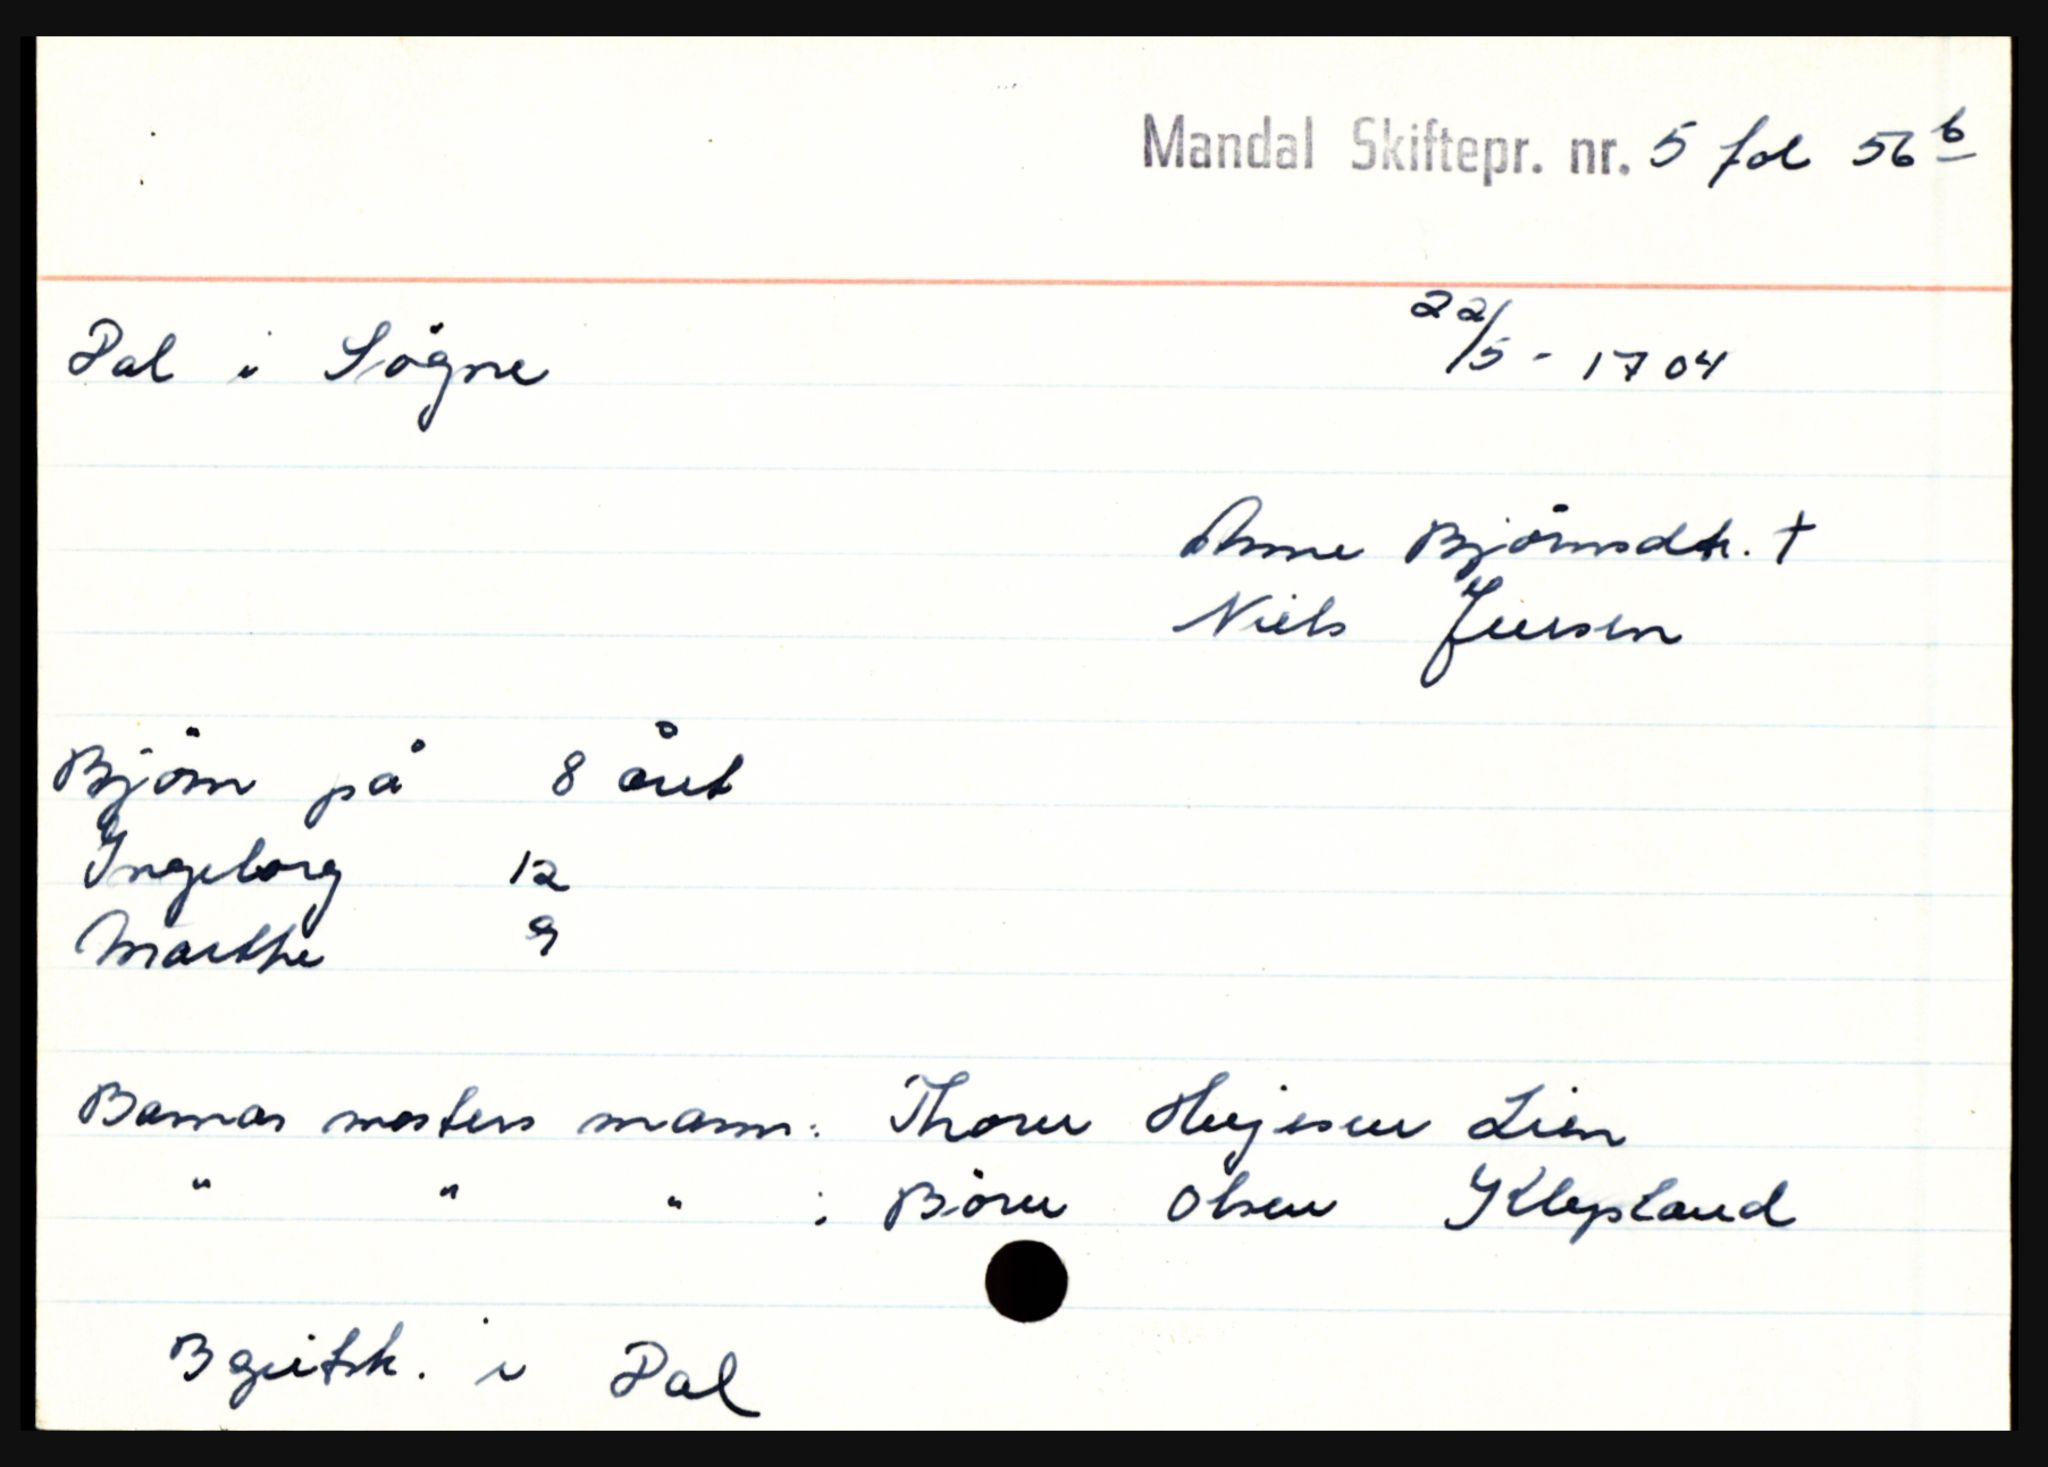 Mandal Skiftepr. nr. 5 fol 56 b
Dal i Søgne 22/5 - 1704
Anne Bjørnsdtr. †
Niels Jensen
Bjørn på 8 året
Ingeborg 12
Marthe 9
Barnas mosters mann: Thore Lien
" " " : Børe Olsen Klepland
B gitsk. i Dal